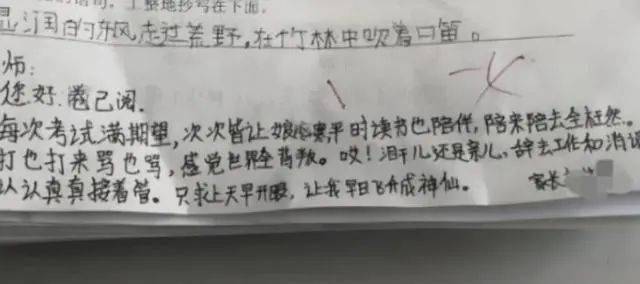 的语句,工整地抄写在下面。
湿润的东风走过荒野,在竹林中吹着口笛。
师:
您好.卷已阅.
每次考试满期望,次次皆让娘心寒,平时读书也陪伴,陪来陪去全枉然。
打也打来骂也骂,感觉世界全背叛。哎!泪干儿还是亲儿,辞去工作和消
认认真真接着管。只求上天早开眼,让我早日飞升成神仙。 家长